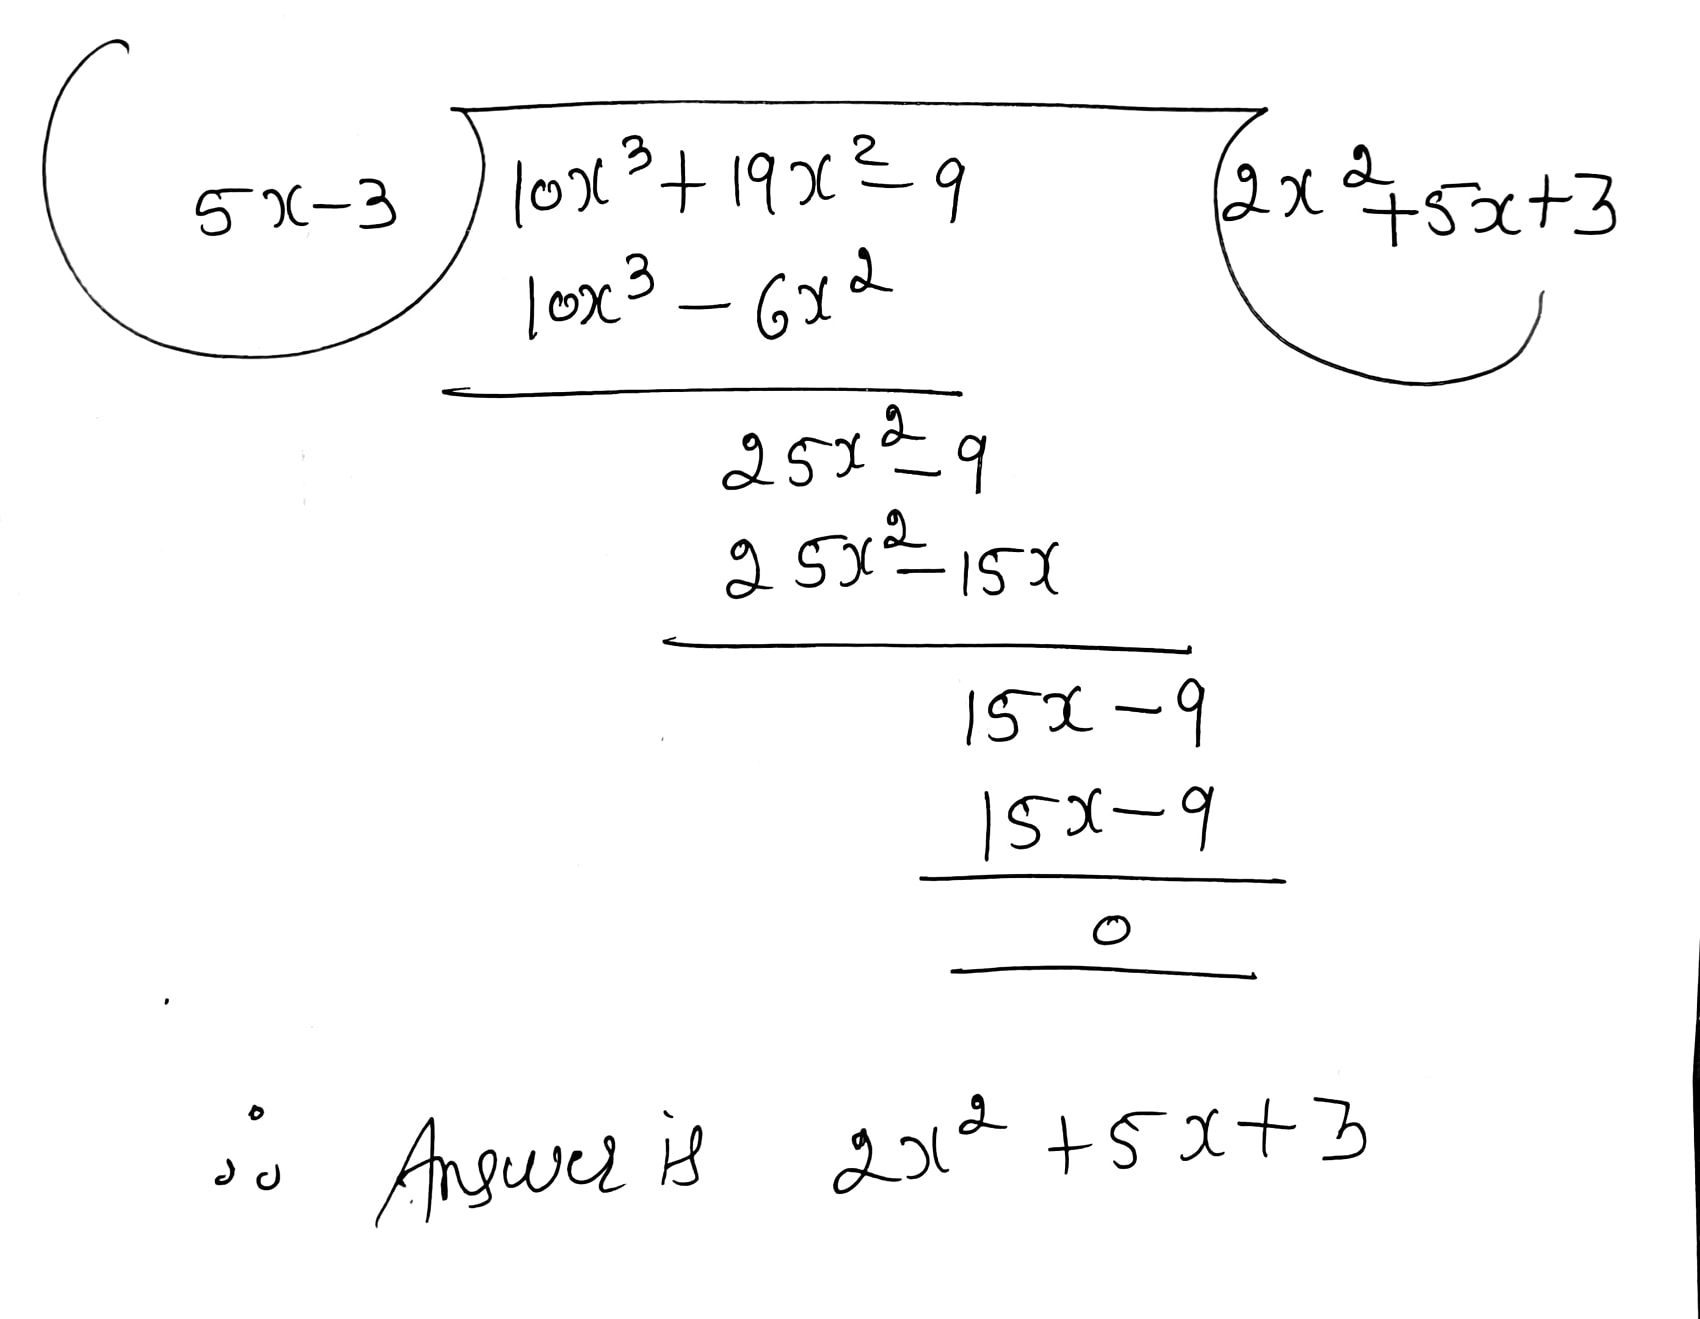 5x-3 ) 10x³ + 19x² - 9 ( 2x² + 5x + 3
10x³ - 6x²
25x² - 9
25x² - 15x
15x - 9
15x - 9
0
∴ Answer is 2x² + 5x + 3